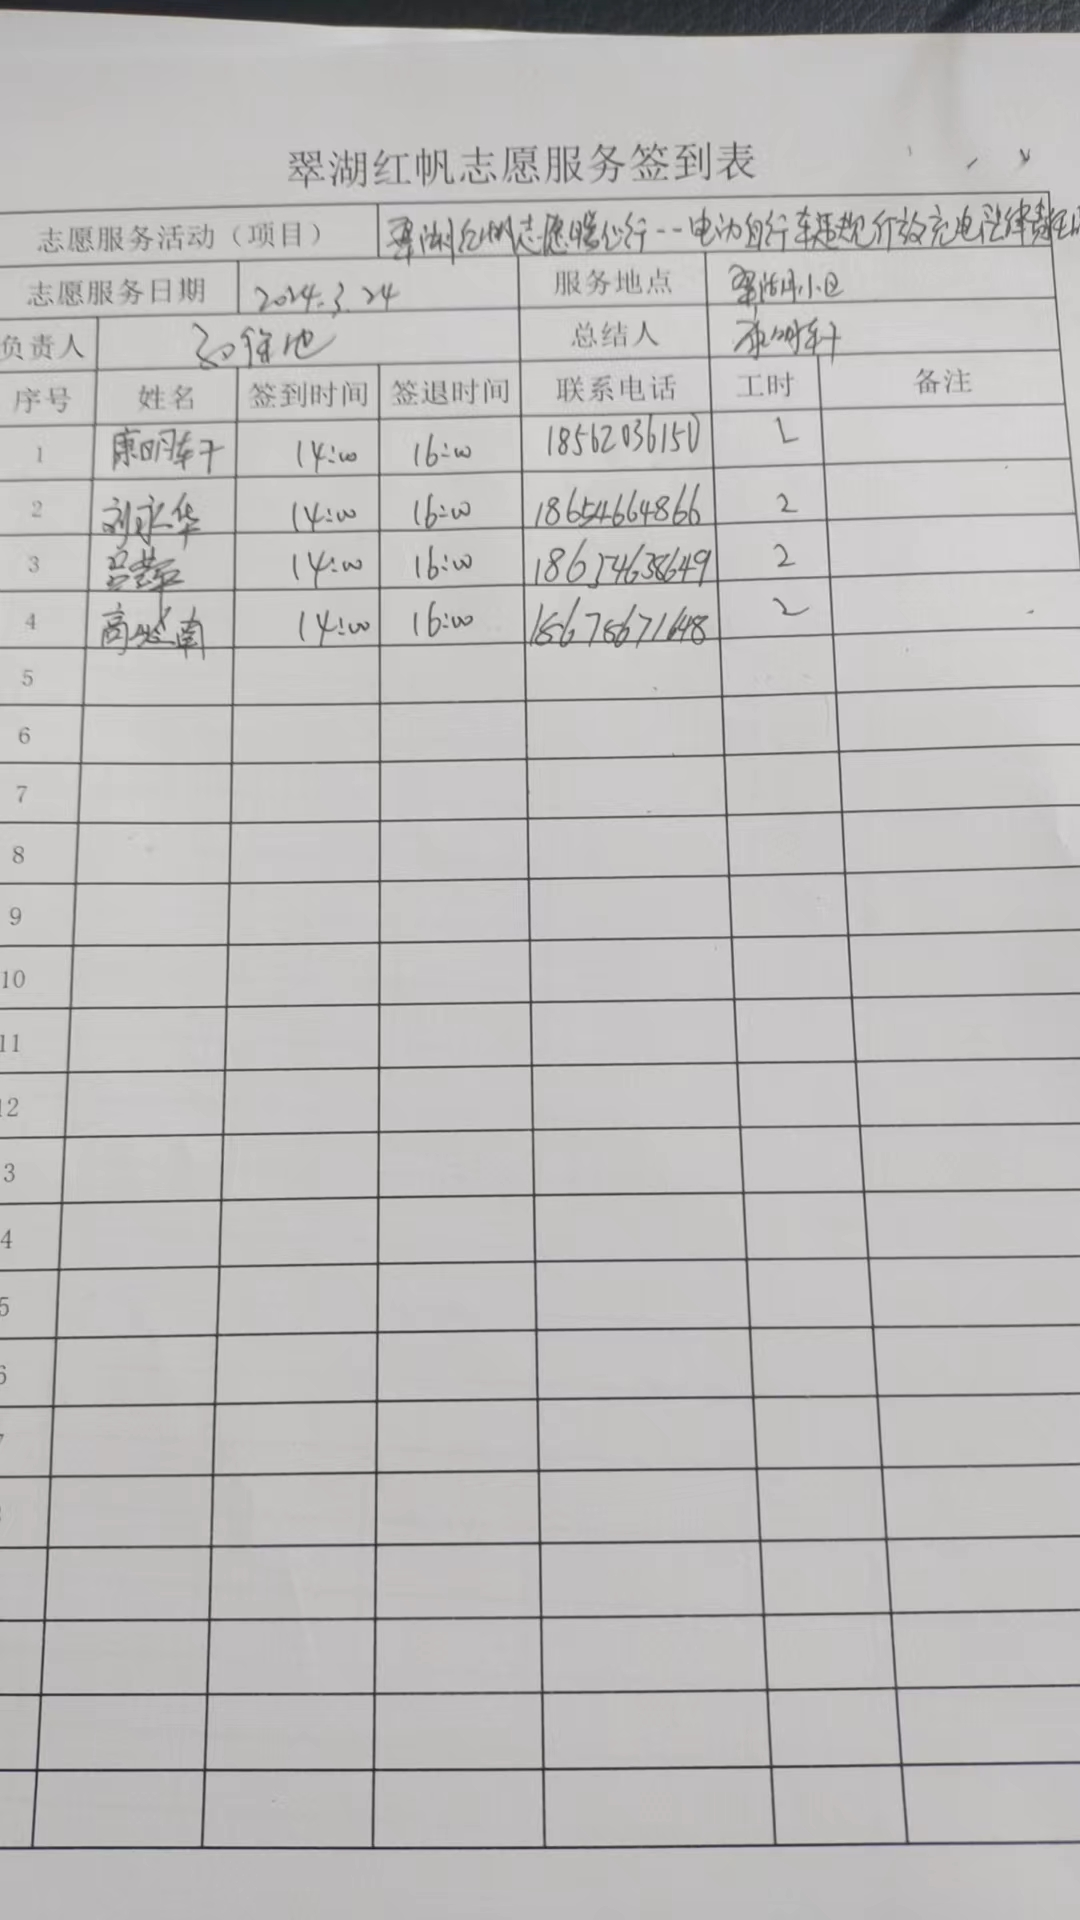 翠湖红帆志愿服务签到表
志愿服务活动（项目） 翠湖红帆志愿暖心行--电动自行车违规停放充电法律责任
志愿服务日期 2024.3.24 服务地点 翠湖小区
负责人 总结人 康明轩
序号 姓名 签到时间 签退时间 联系电话 工时 备注
1 康明轩 14:00 16:00 18562036150 2
2 刘永华 14:00 16:00 18654664866 2
3 吕蕊 14:00 16:00 18654638649 2
4 高 南 14:00 16:00 18678671648 2
5
6
7
8
9
10
11
12
3
4
5
6